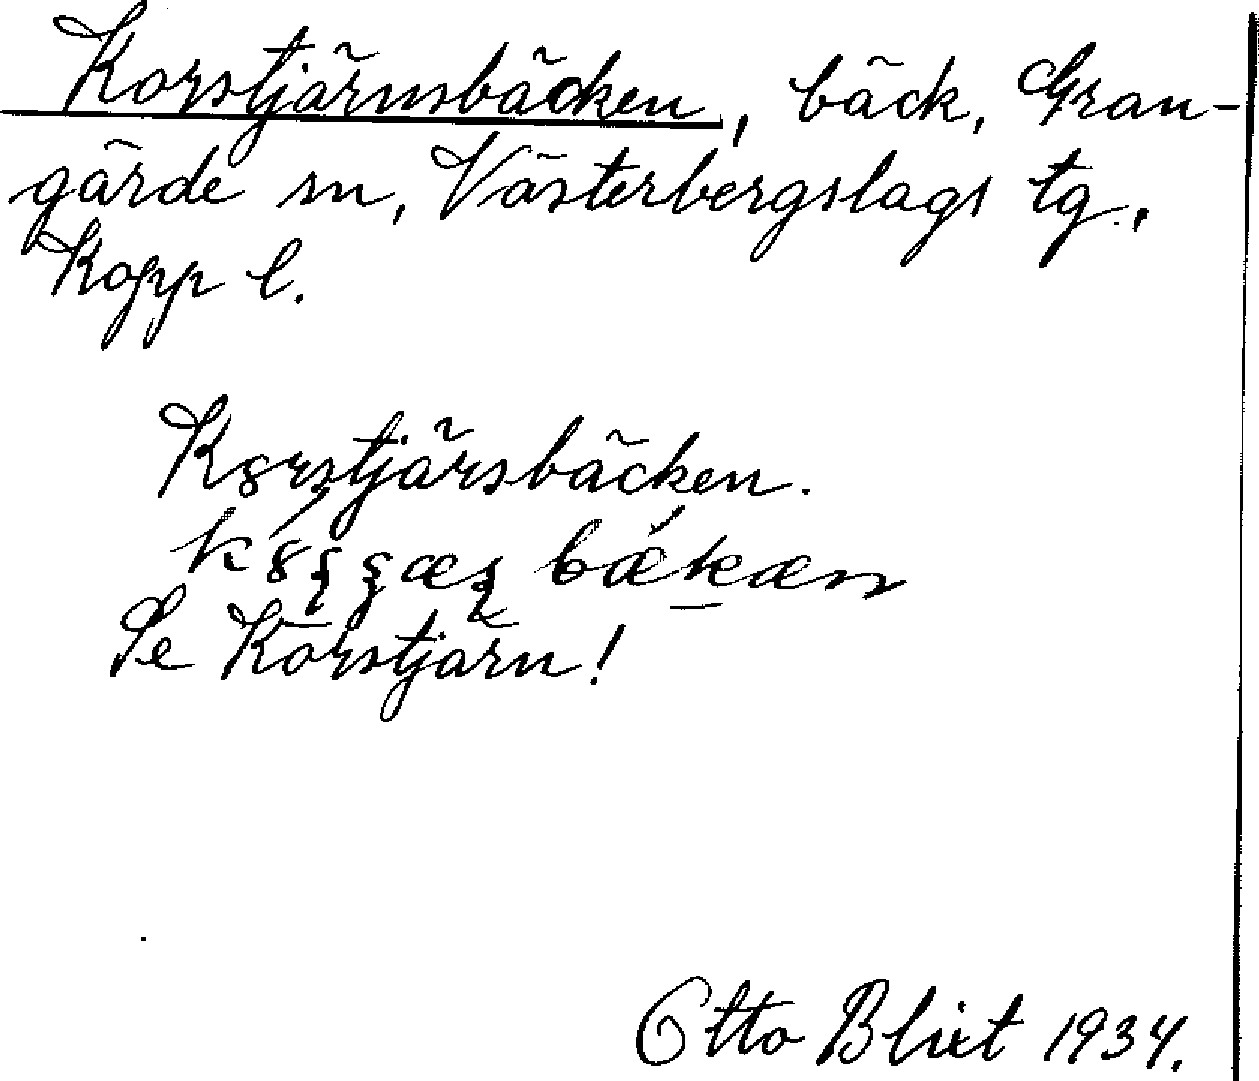 Korstjärnsbäcken, bäck, Gran-
gärde sn, Västerbergslags tg.,
Kopp l.
Korstjärsbäcken.
bäkæn
Se Korstjärn!
Otto Blixt 1934.